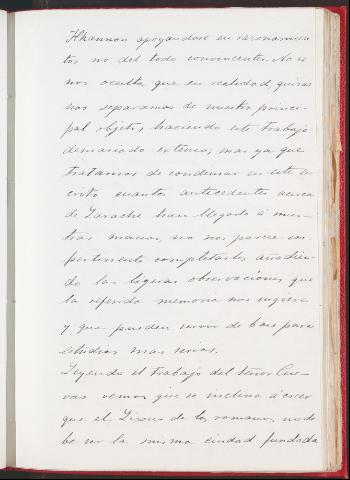 Hhannon apoyandose en razonamien-
tos no del todo convincentes. No se
nos oculta que en realidad, quizas
nos separamos de nuestro princi-
pal objeto, haciendo este trabajo
demasiado extenso; mas ya que
tratamos de condensar en este es-
crito cuantos antecedentes acerca
de Larache han llegado á nues-
tras manos, no nos parece im-
pertinente completarlos añadien-
do las ligeras observaciones que
la referida memoria nos sugiere
y que pueden servir de base para
estudios mas serios.
Leyendo el trabajo del señor Cue-
vas vemos que se inclina á creer
que el Lixus de los romanos no de
be ser la misma ciudad fundada